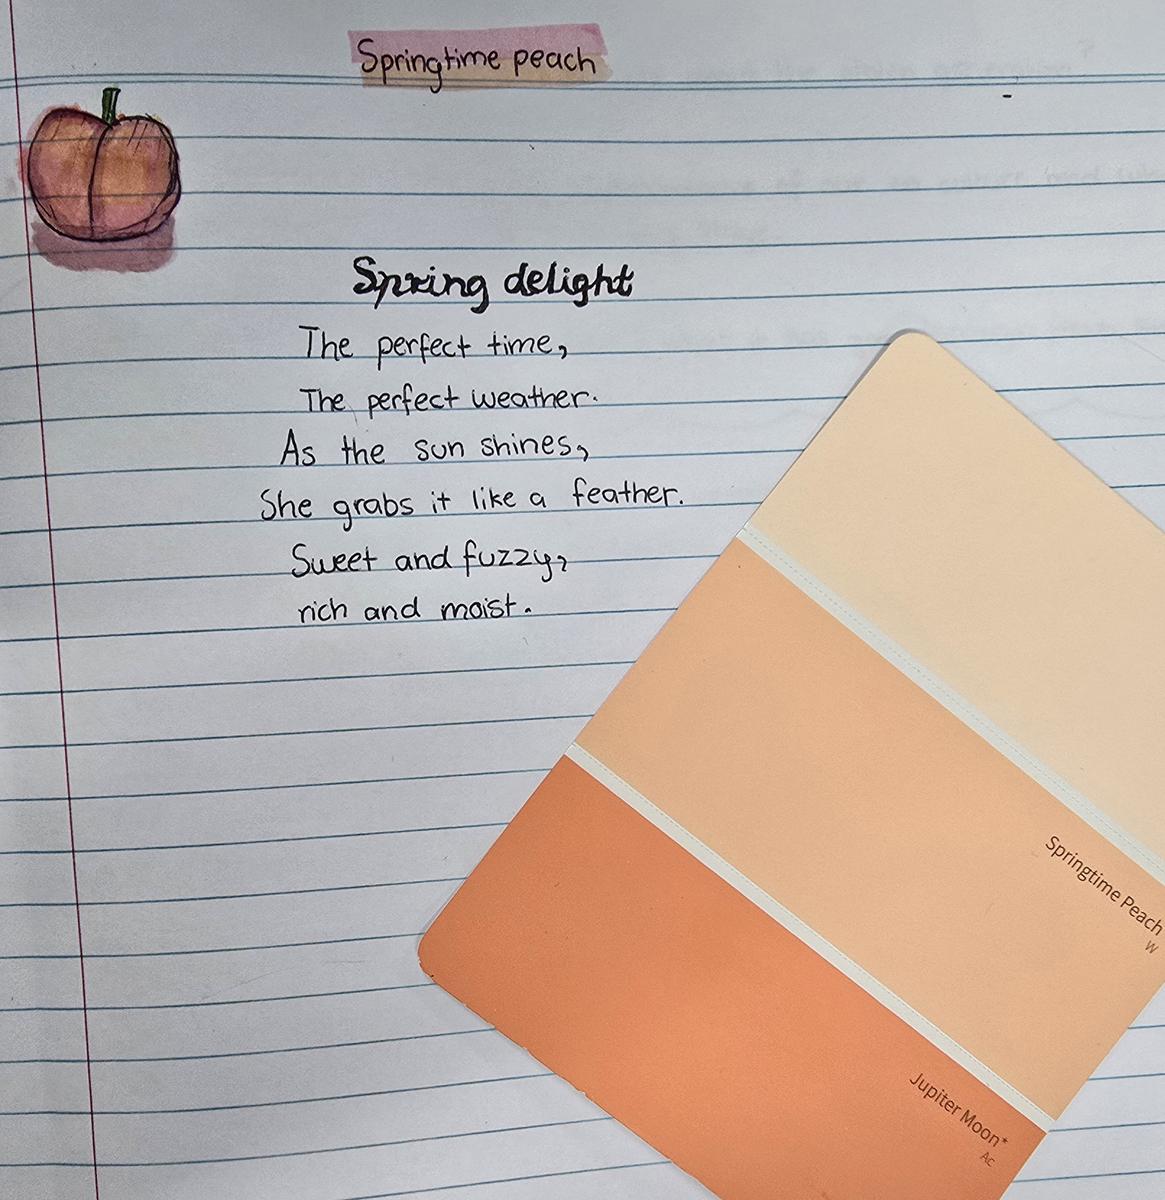 Springtime peach
Spring delight
The perfect time,
The perfect weather.
As the sun shines,
She grabs it like a feather.
Sweet and fuzzy,
rich and moist.
Springtime Peach
W
Jupiter Moon*
Ac